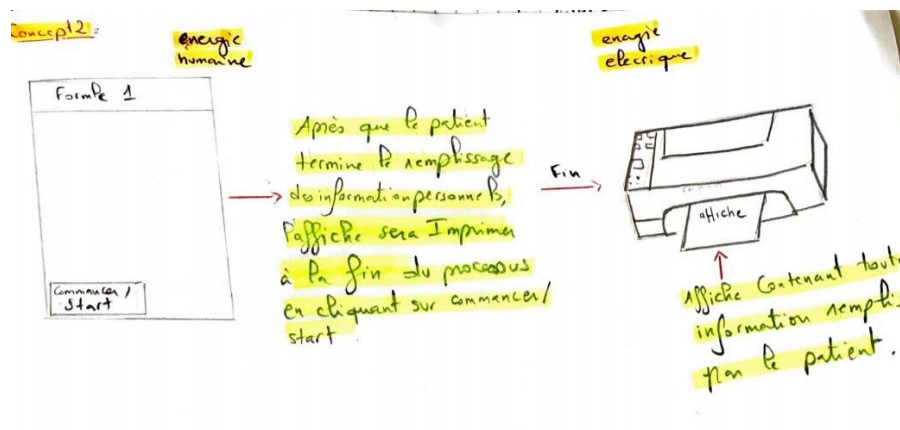 Concept2:
energie
humaine
enegie
elecrique
Formle 1
Après que le patient
termine le remplissage
des information personnels,
l'affiche sera Imprimer
à la fin du processus
en cliquant sur commancer/
start.
Fin
affiche
Commancer /
Start
Affiche Contenant toute
information rempli
par le patient.